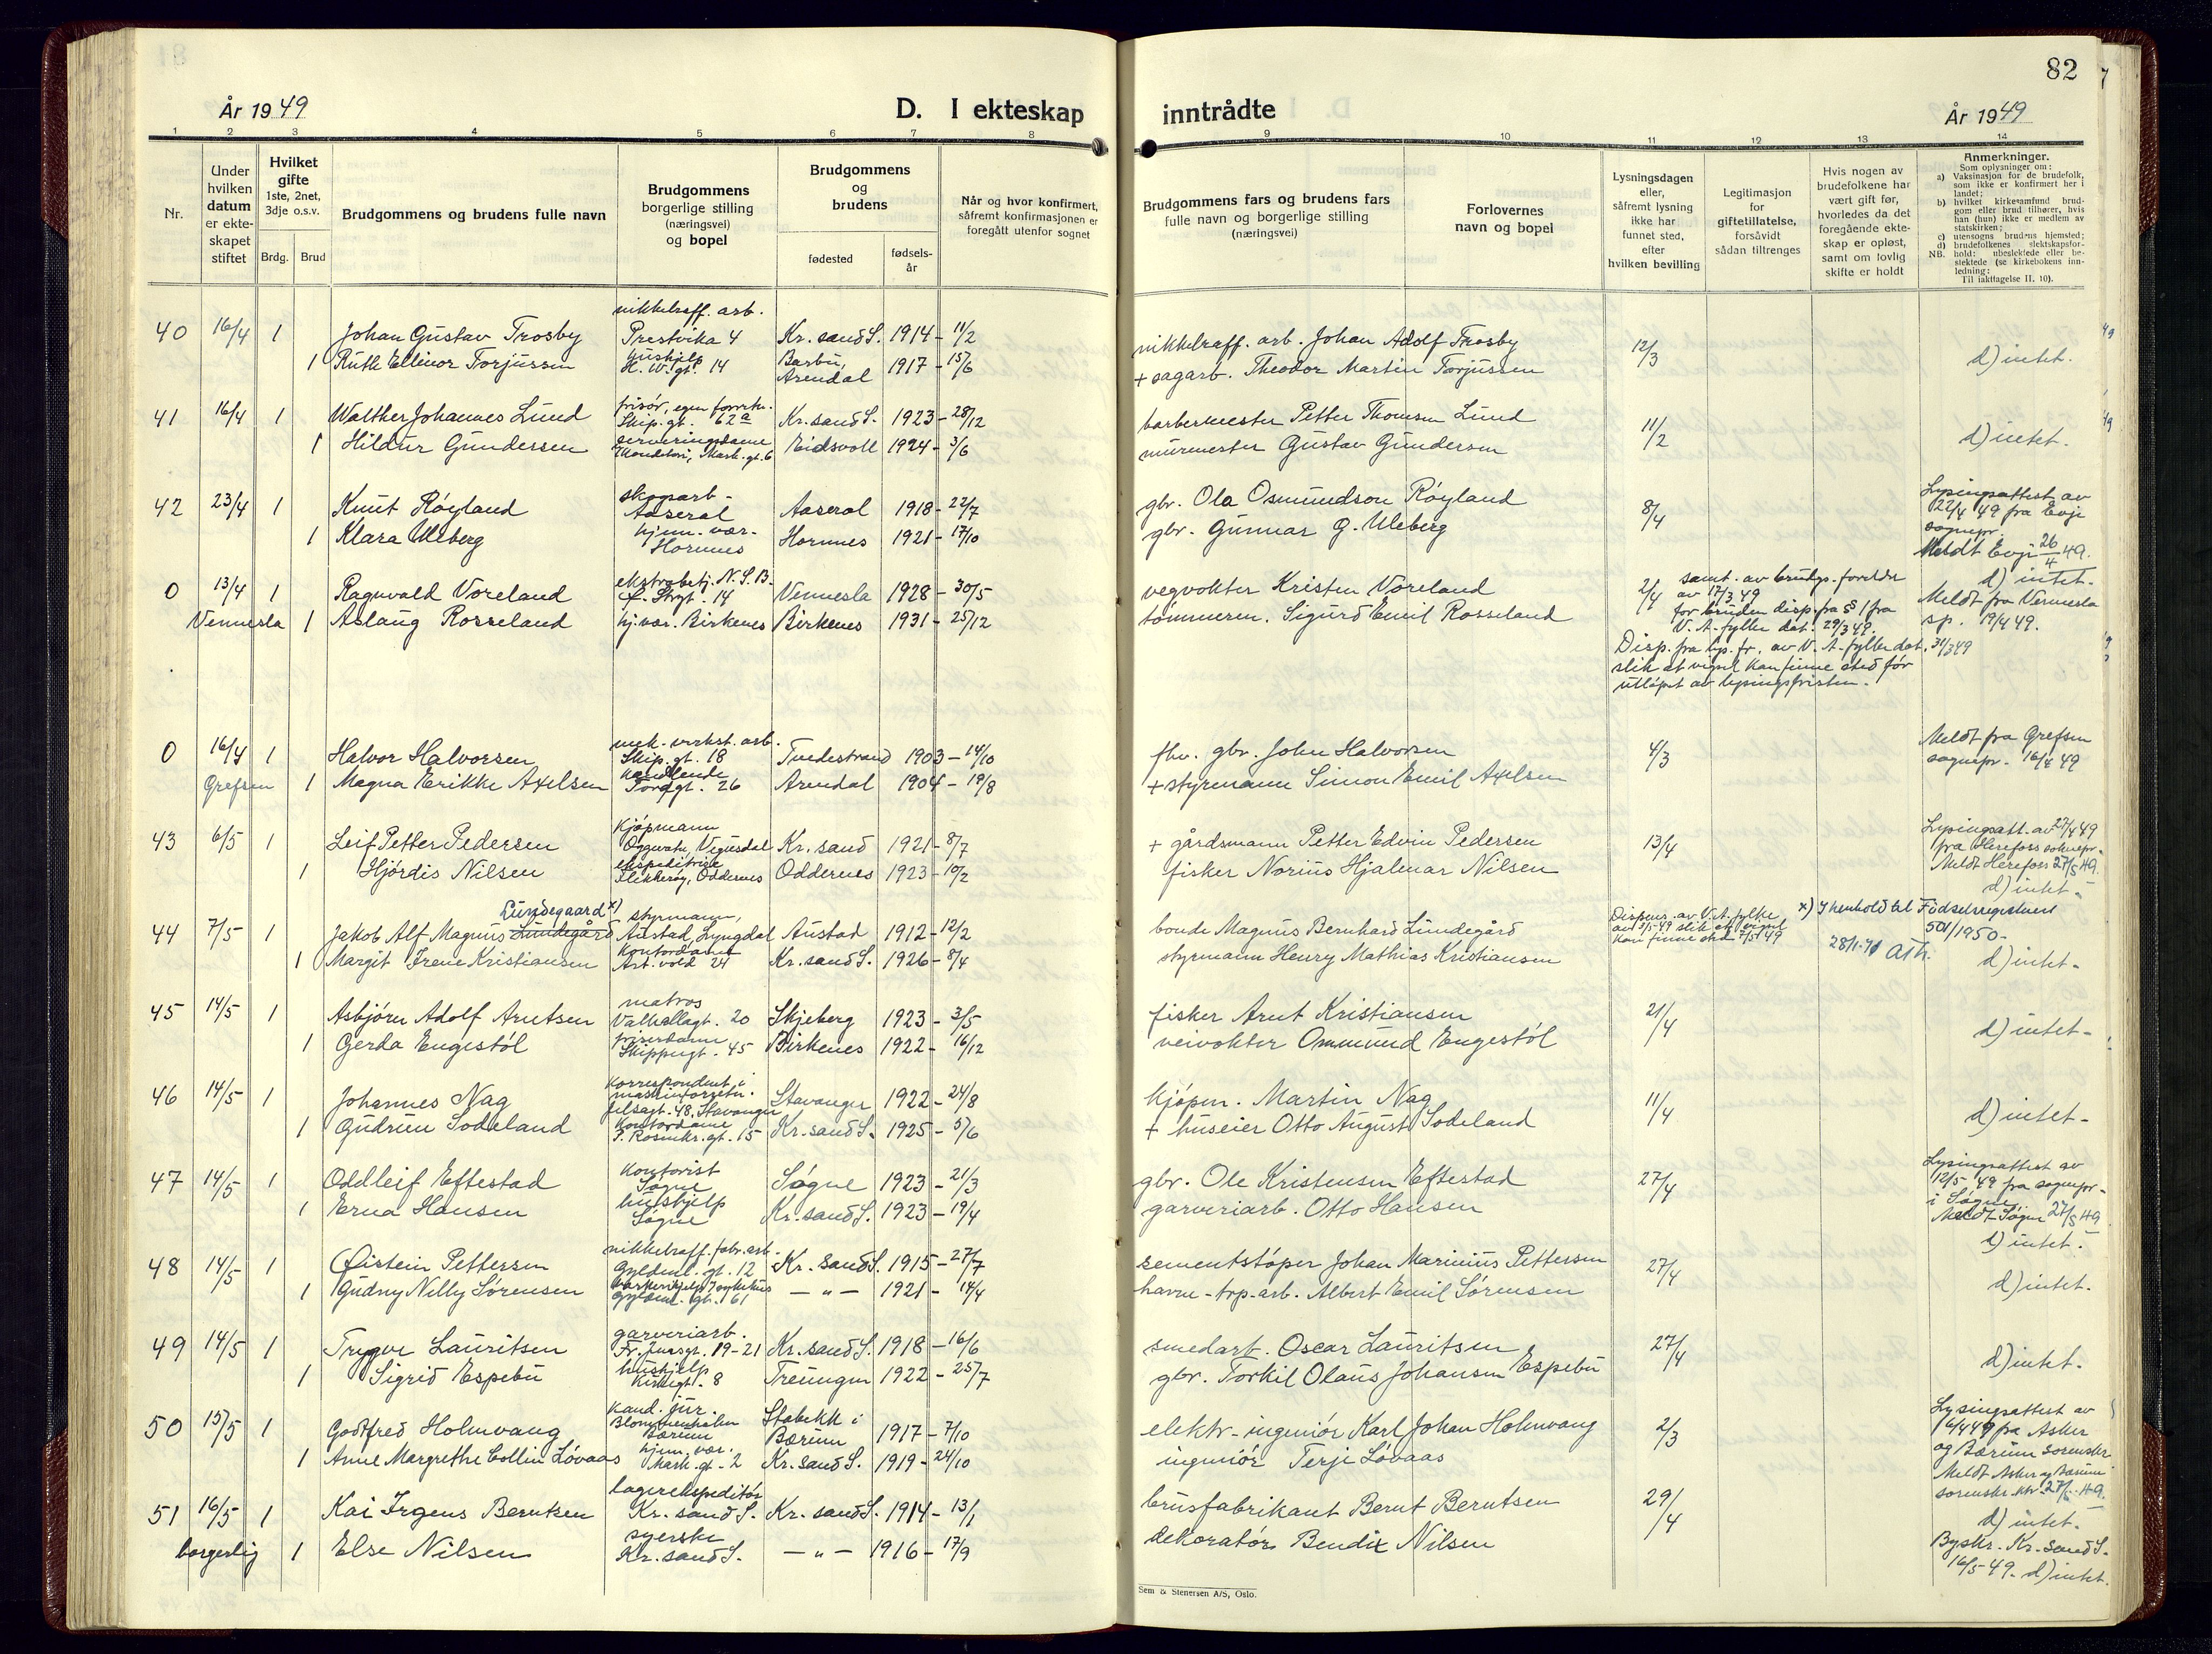 82
År 1949
D. I ekteskap inntrådte
År 1949
1 2 3 4 5 6 7 8 9 10 11 12 13 14
Nr.
Under hvilken datum er ekteskapet stiftet
Hvilket gifte 1ste, 2net, 3dje o.s.v.
Brdg. Brud
Brudgommens og brudens fulle navn
Brudgommens borgerlige stilling (næringsvei) og bopel
Brudgommens og brudens
fødested
fødselsår
Når og hvor konfirmert, såfremt konfirmasjonen er foregått utenfor sognet
Brudgommens fars og brudens fars fulle navn og borgerlige stilling (næringsvei)
Forlovernes navn og bopel
Lysningsdagen eller, såfremt lysning ikke har funnet sted, efter hvilken bevilling
Legitimasjon for giftetillatelse, forsåvidt sådan tiltrenges
Hvis nogen av brudefolkene har vært gift før, hvorledes da det foregående ekteskap er opløst, samt om lovlig skifte er holdt
Anmerkninger.
Som oplysninger om:
a) Vaksinasjon for de brudefolk, som ikke er konfirmert her i landet;
b) hvilket kirkesamfund brudgom eller brud tilhører, hvis han (hun) ikke er medlem av statskirken;
c) utensogns brudens hjemsted;
d) brudefolkenes slektskapsforhold: ubeslektede eller beslektede (se kirkebokens innledning;
NB. Til iakttagelse II. 10).
nikkelraff. arb.
40 16/4 1 Johan Gustav Trosby Prestvika 4 Kr.sand S. 1914 - 11/2 nikkelraff. arb. Johan Adolf Trosby 12/3
1 Ruth Ellinor Torjussen hushjelp H. W. gt. 14 Barbu, Arendal 1917 - 15/6 + sagarb. Theodor Martin Torjussen d) intet.
41 16/4 1 Walther Johannes Lund frisør, egen forretn. Skip. gt. 62a Kr.sand S. 1923 - 28/12 barbermester Petter Thomsen Lund 11/2
1 Hildur Gundersen serveringsdame Mark. gt. 6 Eidsvoll 1924 - 3/6 murmester Gustav Gundersen d) intet.
42 23/4 1 Knut Røyland skogarb - Aaseral Aaseral 1918 - 22/7 gbr. Ola Osmundson Røyland 8/4 Lysingsattest av 22/4 49 fra Evje sognepr.
1 Klara Uleberg hjem. vær. Hornnes Hornnes 1921 - 17/10 gbr. Gunnar G. Uleberg Meldt Evje 26/4 49. d) intet.
0 13/4 1 Ragnvald Voreland ekstrabetj. N.S.B. Vennesla 1928 - 30/5 vegvokter Kristen Voreland 2/4 samt. av brudgs. foreldre av 17/3 49
Vennesla 1 Aslaug Rosseland hj.vær. Birkenes Birkenes 1931 - 25/12 tømmerm. Sigurd Emil Rosseland for bruden disp. fra § 1 fra V. A. fylke dat. 29/3 49. Meldt fra Vennesla sp. 19/4 49.
Disp. fra lys. fr. av V. A. fylke dat. 31/3 49
slik at vigsel kan finne sted før
utløpet av lysingsfristen.
0 16/4 1 Halvor Halvorsen mek. verkst. arb. Skip. gt. 18 Tvedestrand 1903 - 14/10 fhv. gbr. John Halvorsen 4/3 Meldt fra Grefsen sognepr. 16/4 49
Grefsen 1 Magna Erikke Axelsen handlende Tordgt. 26 Arendal 1904 - 19/8 + styrmann Simon Emil Axelsen
43 6/5 1 Leif Petter Pedersen Kjøpmann Oggevatn, Vegusdal Kr. sand 1921 - 8/7 + gårdsmann Petter Edvin Pedersen 13/4 Lysingsatt. av 27/4 49 fra Herefoss soknepr.
1 Hjørdis Nilsen ekspeditrise Flekkerøy, Oddernes Oddernes 1923 - 10/2 fisker Norius Hjalmar Nilsen Meldt Herefoss 27/5 49. d) intet.
Lundegaard x)
44 7/5 1 Jakob Alf Magnus Lundegård styrmann, Austad, Lyngdal Austad 1912 - 12/2 bonde Magnus Bernhard Lundegård Dispens. av V.A. fylke av 3/5-49 slik at vigsel kan finne sted 7/5 49 x) I henhold til Fødselsregisteret 501/1950.
1 Margit Irene Kristiansen Kontordame Art. vold 24 Kr.sand S. 1926 - 8/4 styrmann Henry Mathias Kristiansen 28/1-71 d) intet.
45 14/5 1 Asbjørn Adolf Arntsen matros Valhallagt. 20 Skjeberg 1923 - 3/5 fisker Arnt Kristiansen 21/4
1 Gerda Engestøl friserdame Skippergt. 45 Birkenes 1922 - 16/12 veivokter Osmund Engestøl d) intet.
46 14/5 1 Johannes Nag korrespondent i maskinforretn. 48, Stavanger Stavanger 1922 - 24/8 kjøpm. Martin Nag 11/4
1 Gudrun Sodeland Kontordame P. Rosenkr. gt. 15 Kr.sand S. 1925 - 5/6 + huseier Otto August Sodeland d) intet.
47 14/5 1 Oddleif Eftestad kontorist Søgne Søgne 1923 - 21/3 gbr. Ole Kristensen Eftestad 27/4 Lysingsattest av 12/5 49 fra sognepr. i Søgne
1 Erna Hansen hushjelp Søgne Kr.sand S. 1923 - 19/4 garveriarb. Otto Hansen Meldt Søgne 27/5 49 d) intet.
48 14/5 1 Øistein Pettersen nikkelraff. fabr. arb. Gyldenl. gt. 12 Kr. sand S. 1915 - 27/7 sementstøper Johan Marinius Pettersen 27/4
1 Gudny Nelly Sørensen Gyldenl. gt. 61 — " — 1921 - 14/4 havne-trp-arb. Albert Emil Sørensen d) intet.
49 14/5 1 Trygve Lauritsen garveriarb. 19-21 Kr.sand S. 1918 - 16/6 smedarb. Oscar Lauritsen 27/4
1 Sigrid Espebu hushjelp Kirkegt. 8 Treungen 1922 - 25/7 gbr. Torkil Olaus Johansen Espebu d) intet.
50 15/5 1 Godtfred Holmvang kand. jur. Blommenholm Bærum Stabekk i Bærum 1917 - 7/10 elektr-ingeniør Karl Johan Holmvang 2/3 Lysingsattest av 6/4 49 fra Asker og Bærum sorenskr
1 Anne Margrethe Collin Løvaas hjem. vær. Mark. gt. 2 Kr.sand S. 1919 - 24/10 ingeniør Terje Løvaas Meldt Asker og Bærum sorenskr. ktr. 49. d) intet.
51 16/5 1 Kai Irgens Berntsen lagerekspeditør Kr. sand S. Kr. sand S. 1914 - 13/1 brusfabrikant Bernt Berntsen 29/4
borgerlig 1 Else Nilsen syerske Kr.sand S. — " — 1916 - 17/9 dekoratør Bendix Nilsen Byskr. Kr.sand S. 16/5-49. d) intet.
Sem & Stenersen A/S, Oslo.